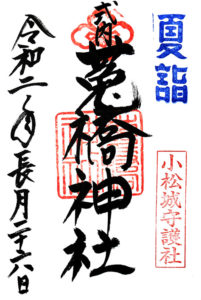 夏詣
式内
莵橋神社
小松城守護社
令和二年長月二十六日